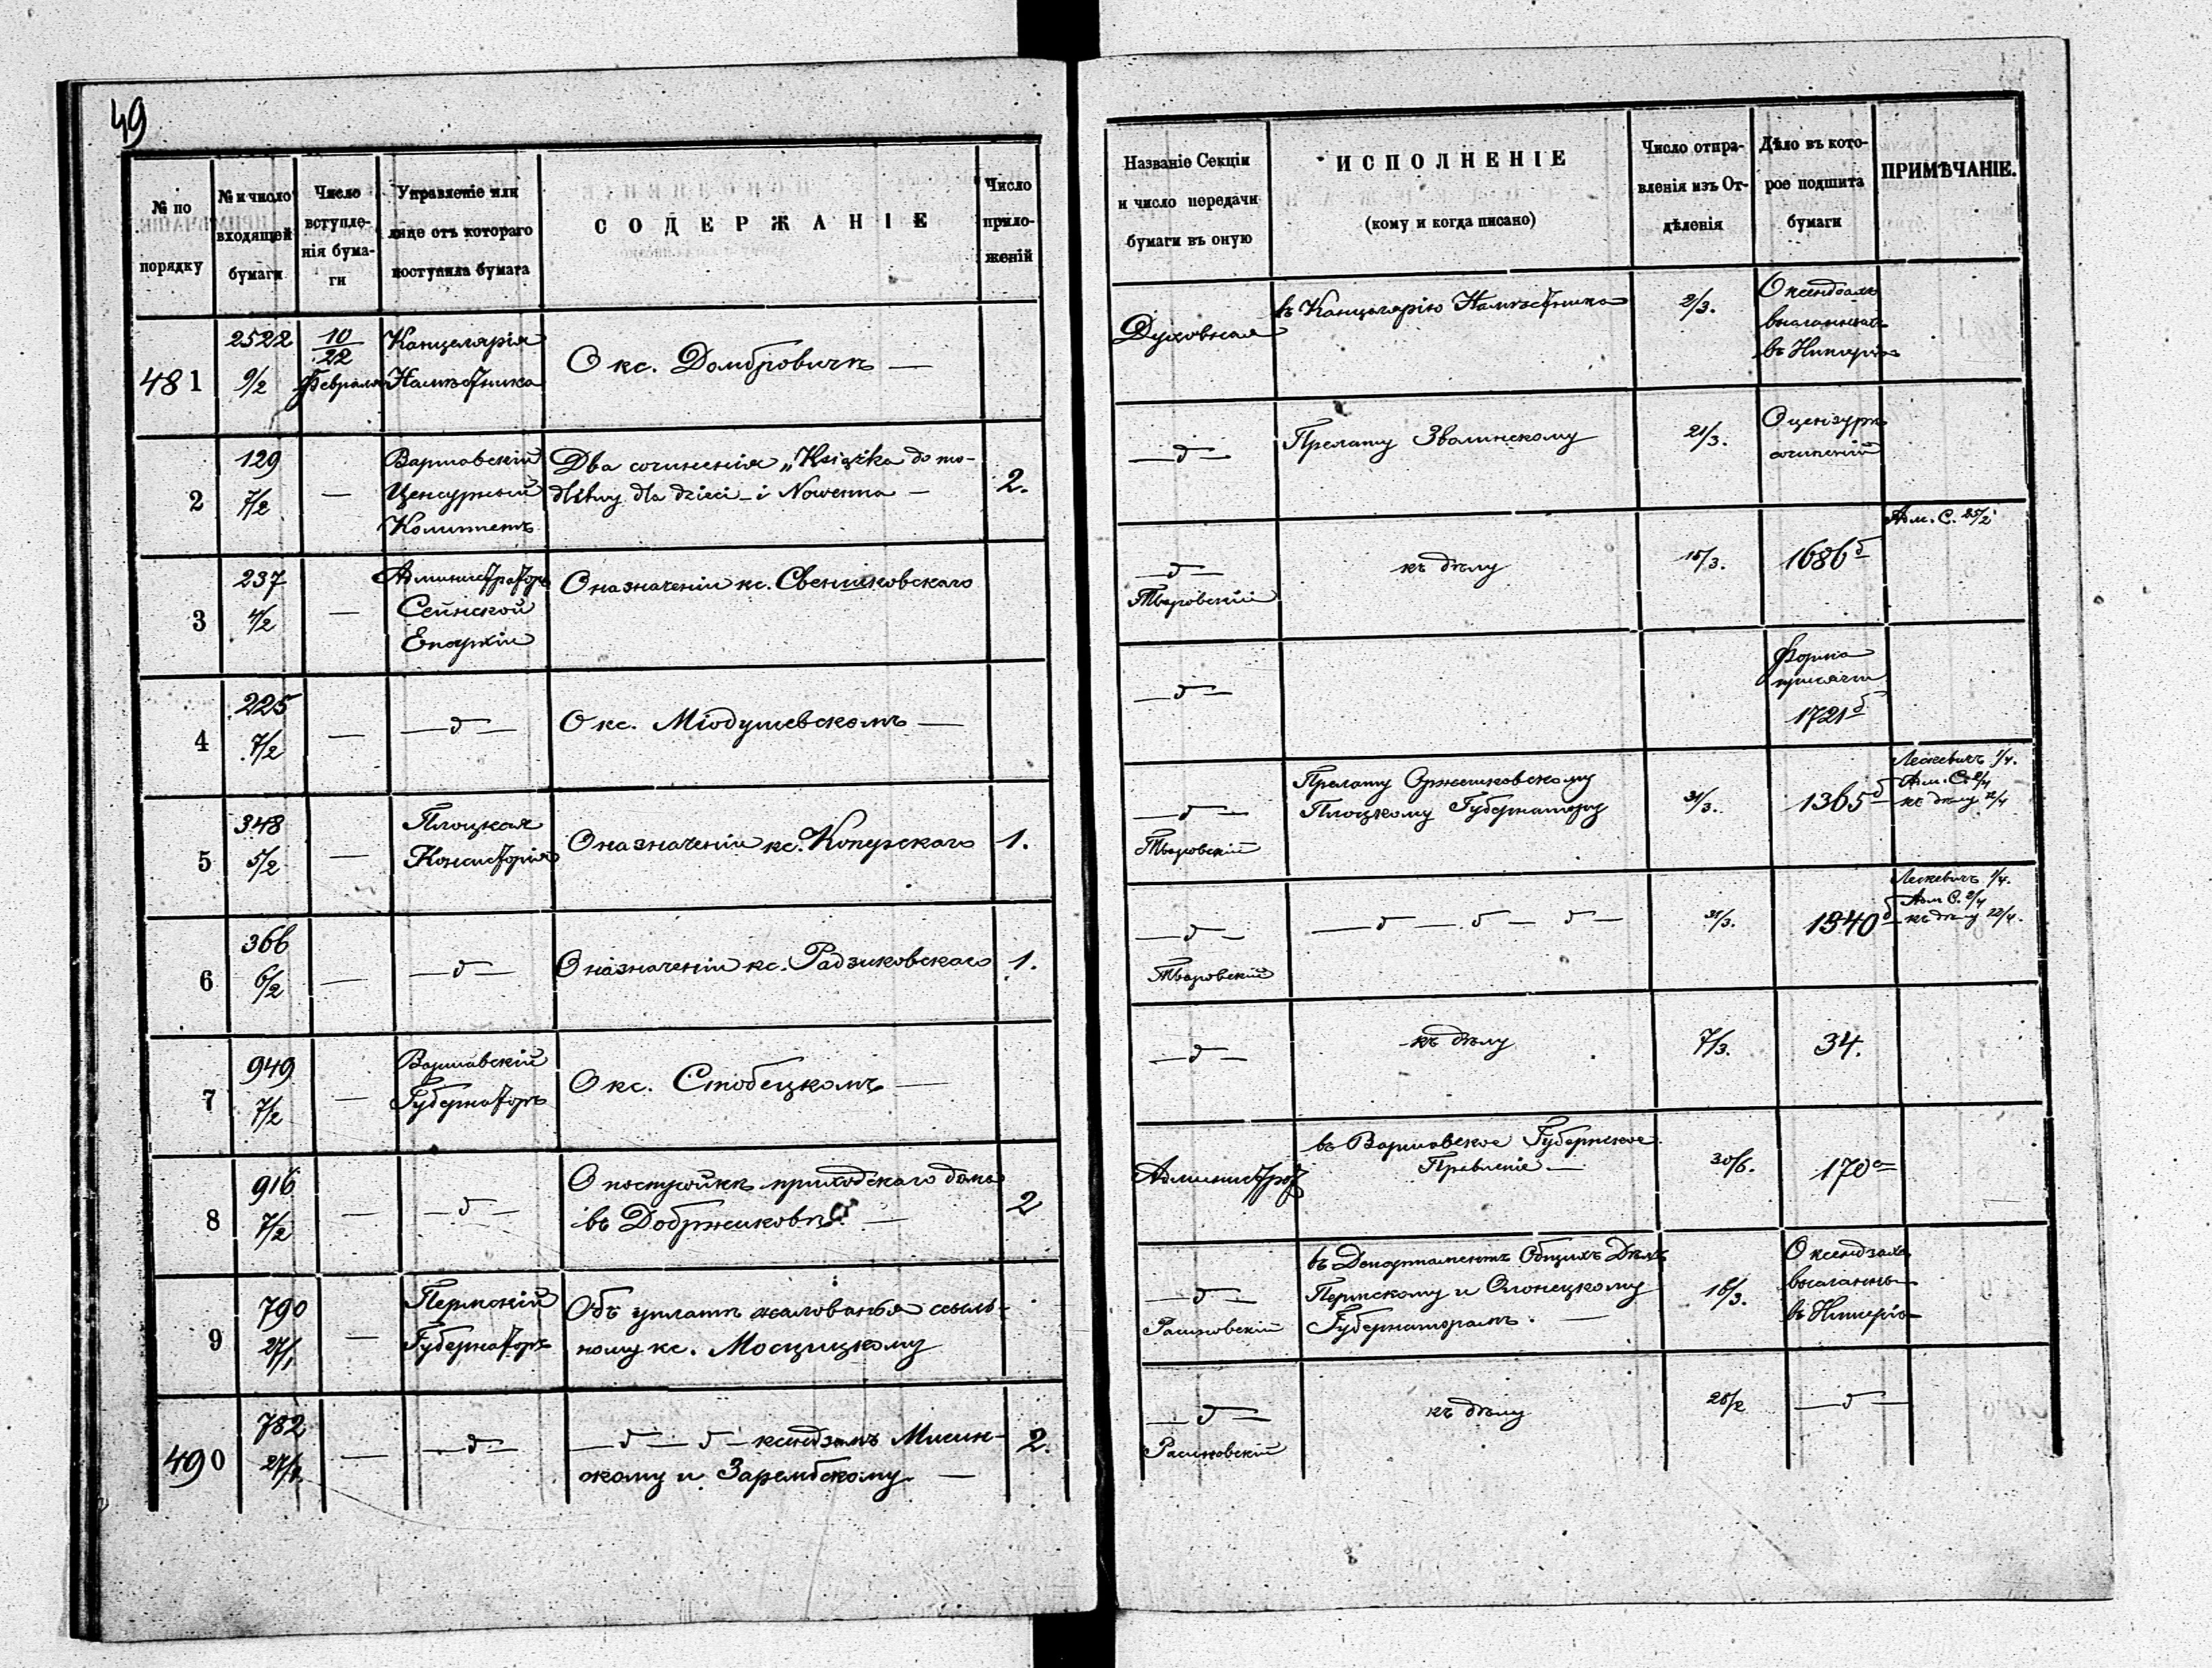 49
№ по порядку
№ и число входящей бумаги
Число вступленія бумаги
Управленіе или лице отъ котораго поступила бумага
СОДЕРЖАНІЕ
Число приложеній
Названіе Секціи и число передачи бумаги въ оную
ИСПОЛНЕНІЕ
(кому и когда писано)
Число отправленія изъ Отдѣленія
Дѣло въ которое подшита бумаги
ПРИМѢЧАНІЕ.
481
2522
9/2
10/22
Февраля
Канцелярія
Намѣстника
О кс. Домбровичѣ —
Духовная
въ Канцелярію Намѣстника
2/3.
О ксендзахъ
высланныхъ
въ Имперію
2
129
7/2
—
Варшавскій
Цензурный
Комитетъ
Два сочиненія „Książka do mo-
dlitwy dla dzieci – i Nowenna —
2.
— д —
Прелату Зволинскому
21/3.
О цензурѣ
сочиненій
3
237
4/2
—
Администраторъ
Сейнской
Епархіи
О назначеніи кс. Свенцковскаго
— д —
Тваровскій
къ дѣлу
15/3.
1686 б
Адм. С. 25/2
4
225
7/2
—
— д —
О кс. Міодушевскомъ —
— д —
Форма
присяги
1721 б
5
348
5/2
—
Плоцкая
Консисторія
О назначеніи кс. Копурскаго
1.
— д —
Тваровскій
Прелату Оржешковскому
Плоцкому Губернатору
31/3.
1365 б
Лескевичъ 1/4.
Адм. С. 2/4
къ дѣлу 12/4
6
366
6/2
—
— д —
О назначеніи кс. Радзиковскаго
1.
— д —
Тваровскій
— д — д — д —
31/3.
1340 б
Лескевичъ 1/4.
Адм С. 2/4
къ дѣлу 22/4.
7
949
7/2
—
Варшавскій
Губернаторъ
О кс. Стобецкомъ —
— д —
къ дѣлу
7/3.
34.
8
916
7/2
—
— д —
О постройкѣ приходскаго дома
въ Добржиковѣ —
2
Администрат
въ Варшавское Губернское
Правленіе —
30/6.
170
9
790
27/1
—
Пермскій
Губернаторъ
Объ уплатѣ жалованья ссыль-
ному кс. Мосцицкому
— д —
Расиновскій
въ Департаментъ Общихъ Дѣлъ
Пермскому и Олонецкому
Губернаторамъ. —
16/3.
О ксендзахъ
высланны
въ Имперію
490
782
27/1
—
— д —
— д — д — ксендзамъ Мисин-
скому и Зарембскому. —
2.
— д —
Расиновскій
къ дѣлу
28/2
— д —